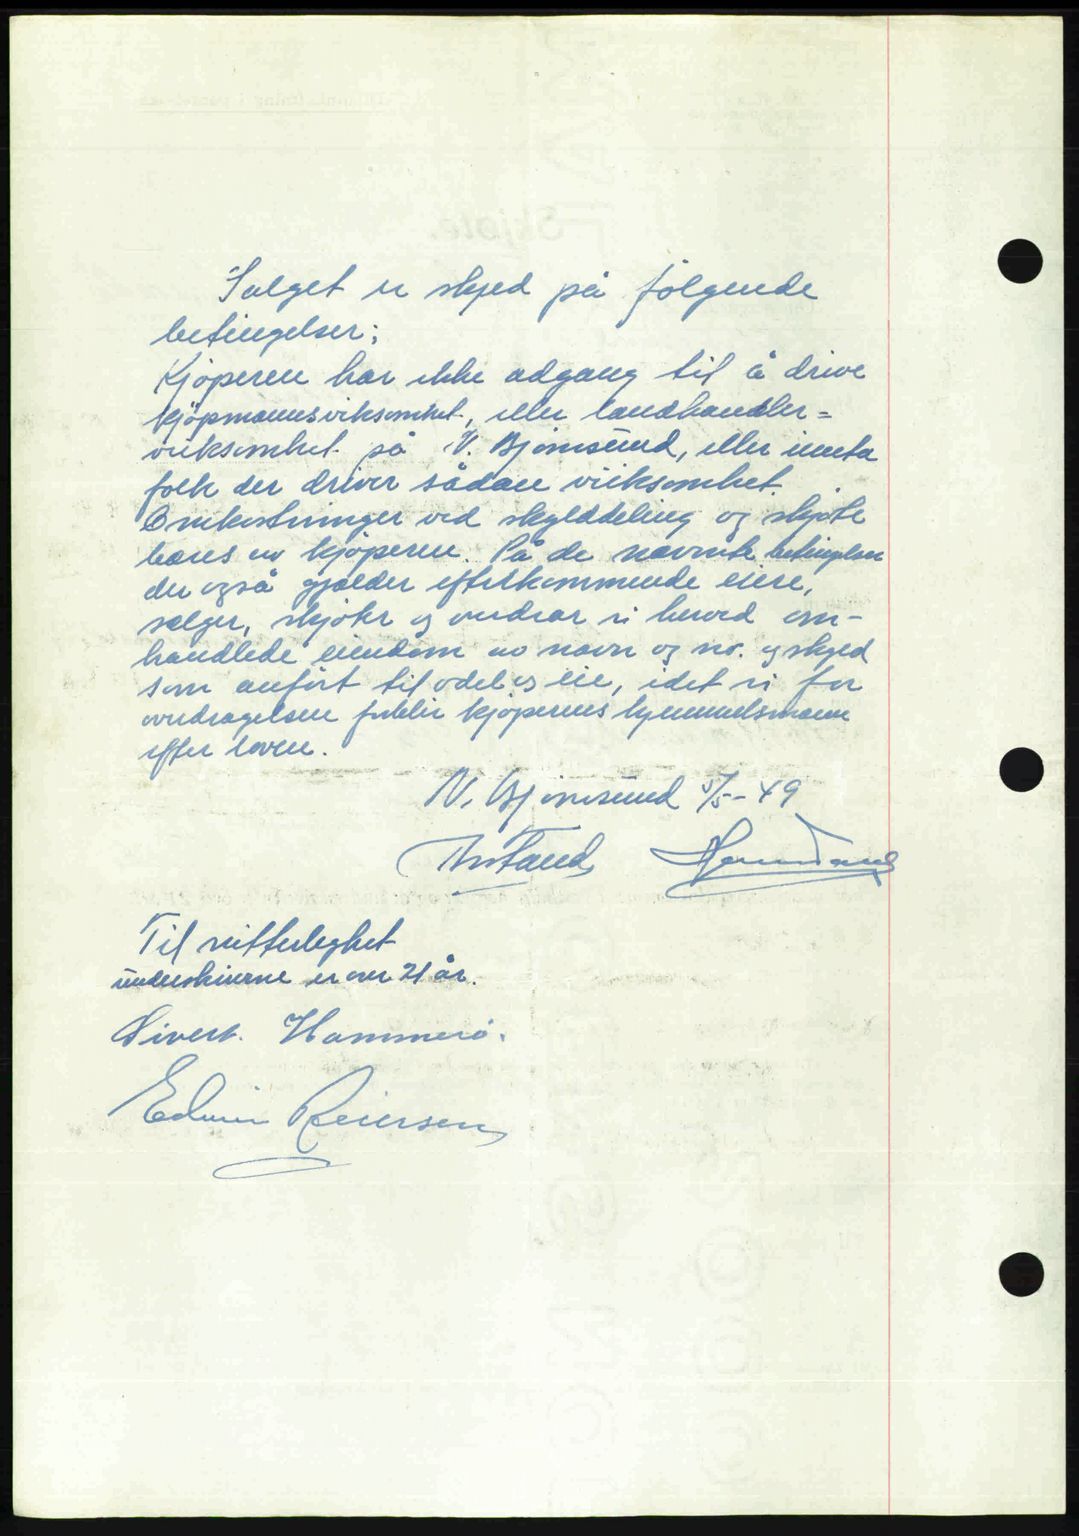 Salget er skjed på følgende
betingelser;
Kjøperen har ikke adgang til å drive
kjøpmannsvirksomhet, eller landhandler=
virksomhet på N. Bjørnsund, eller innta
folk der driver sådan virksomhet.
Omkostninger ved skylddeling og skjøte
bæres av kjøperen. På de nævnte betingelser
der også gjælder efterkommende eiere,
sælger, skjøter og overdrar vi herved om-
handlede eiendom av navn og nr. og skyld
som anført til odel og eie, idet vi for
overdragelsen forblir kjøperens hjemmelsmann
efter loven.
N. Bjørnsund 5/5-49
Til vitterleghet
underskriverne er over 21 år.
Sivert. Hammerø.
Edvin Reiersen
Skjøte.